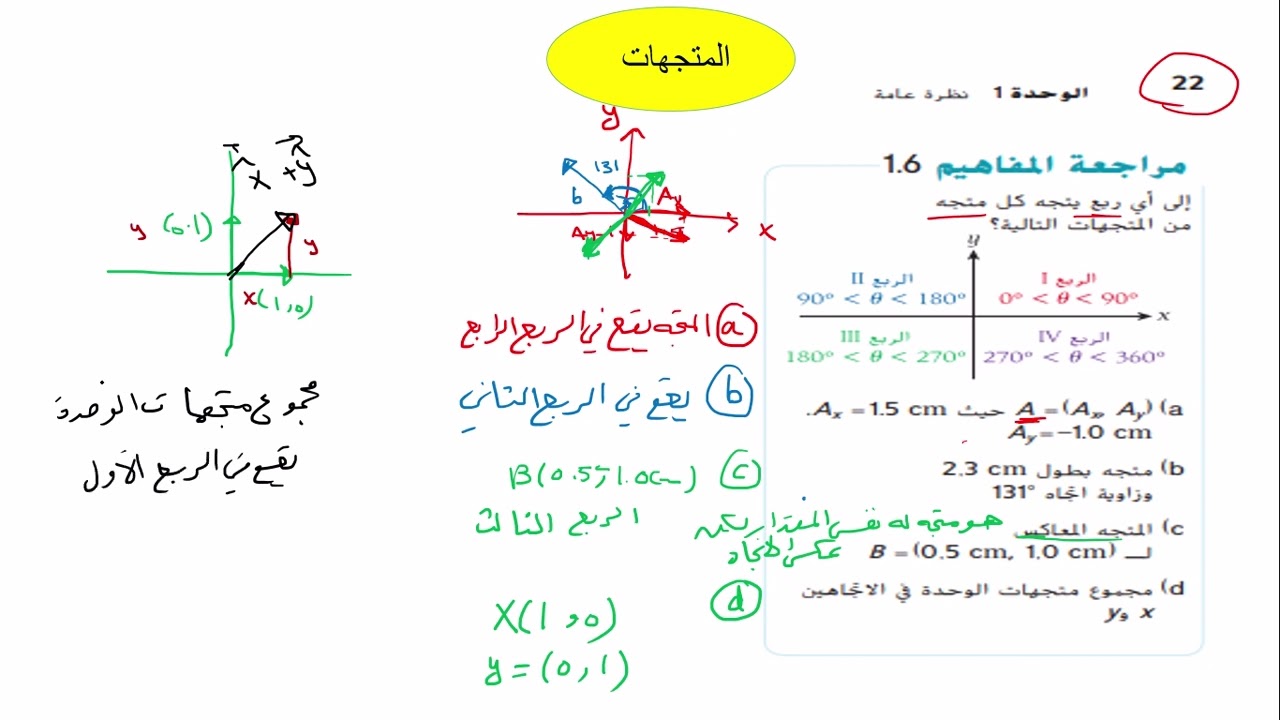 المتجهات
22
الوحدة 1 نظرة عامة
مراجعة المفاهيم 1.6
إلى أي ربع يتجه كل متجه
من المتجهات التالية؟
y
الربع II
90° < θ < 180°
الربع I
0° < θ < 90°
x
الربع III
180° < θ < 270°
الربع IV
270° < θ < 360°
a) A = (Ax, Ay) حيث Ax = 1.5 cm.
Ay = −1.0 cm
b) متجه بطول 2.3 cm
وزاوية اتجاه 131°
c) المتجه المعاكس
لـ B = (0.5 cm, 1.0 cm)
هو متجه له نفس المقدار لكن
عكس الاتجاه
d) مجموع متجهات الوحدة في الاتجاهين
x و y
y
131
b
Ay
x
a المتجه يقع في الربع الرابع
b يقع في الربع الثاني
c B(0.5, 1.0cm)
الربع الثالث
d
X(1,0)
y = (0,1)
x + y
y (0.1)
y
x (1,0)
مجموع متجهات الوحدة
يقع في الربع الأول